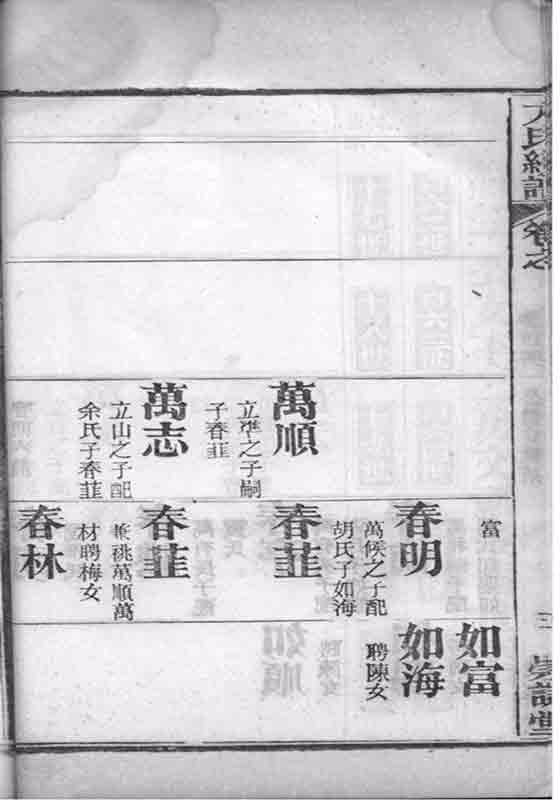 卷之
三
萬順
立準之子嗣
子春韮
萬志
立山之子配
余氏子春韮
富
春明
萬候之子配
胡氏子如海
春韮
春韮
兼祧萬順萬
材聘梅女
春林
如富
如海
聘陳女